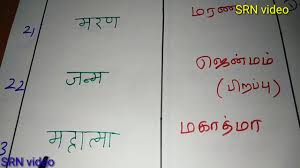 SRN video
21) मरण மரண
22 जन्म ஜென்மம்
(பிறப்பு)
महात्मा மகாத்மா
SRN video